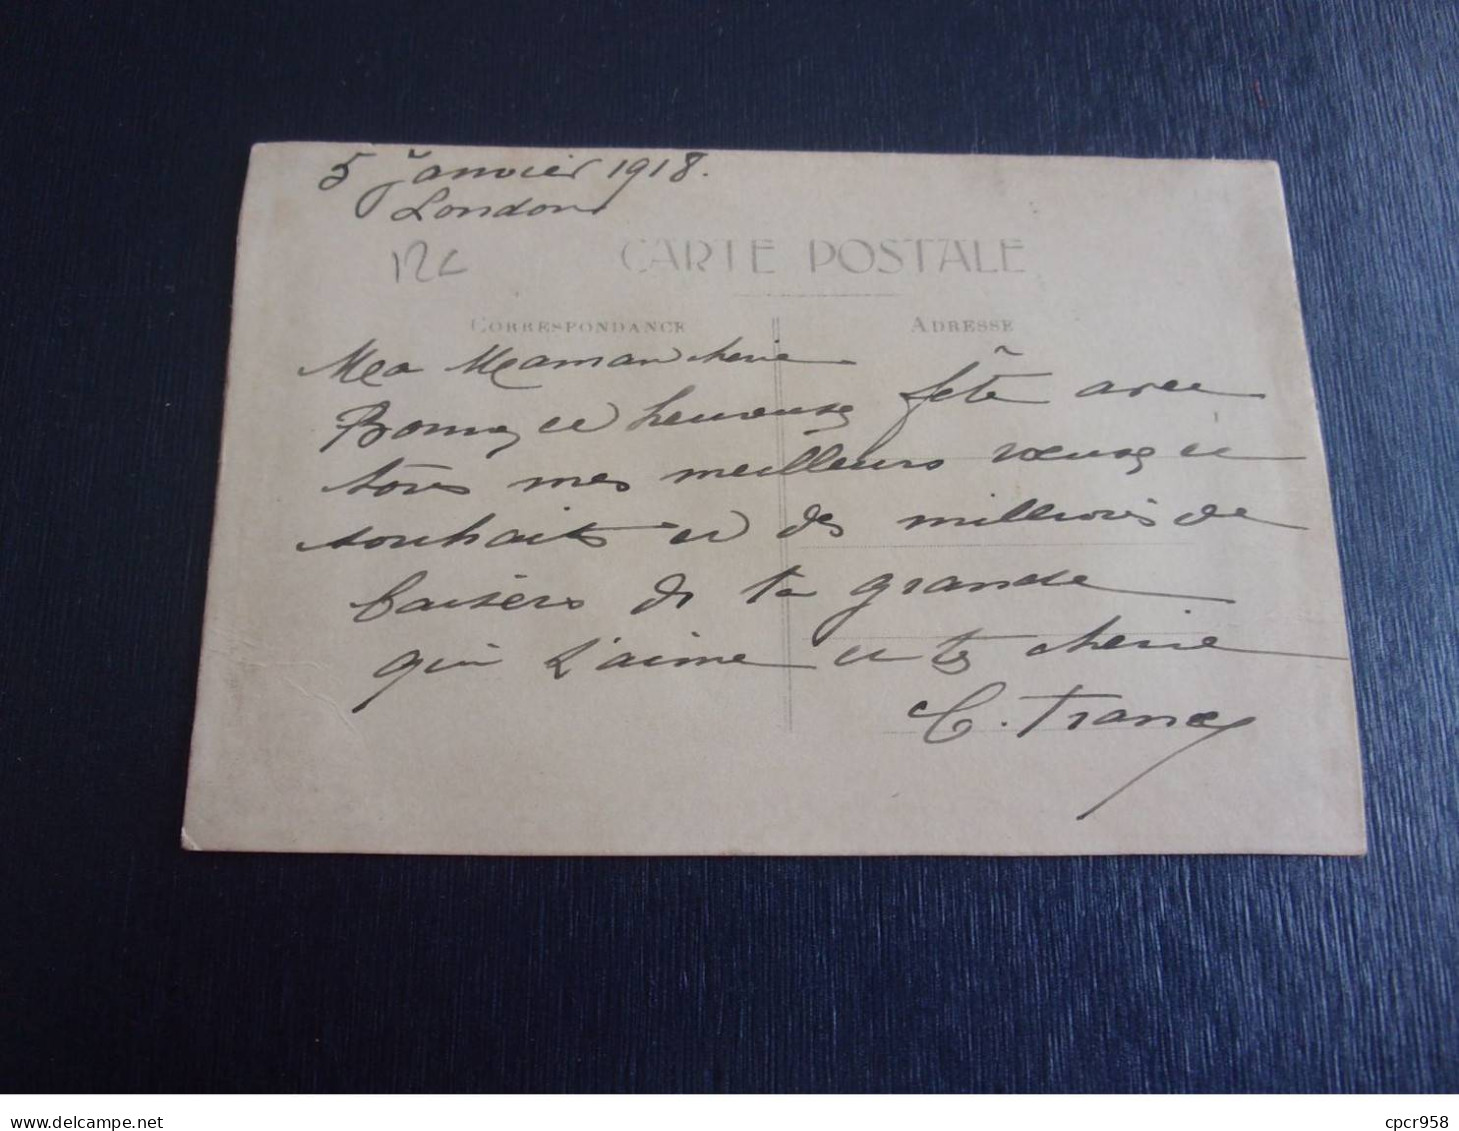 5 Janvier 1918.
London
12€
CARTE POSTALE
CORRESPONDANCE
ADRESSE
Ma Maman cherie
Bonne et heureuse fête avec
tous mes meilleurs voeux et
souhaits et des millions de
baisers de ta grande
qui t'aime et te cherie
C. Franc
delcampe.net
cpcr958